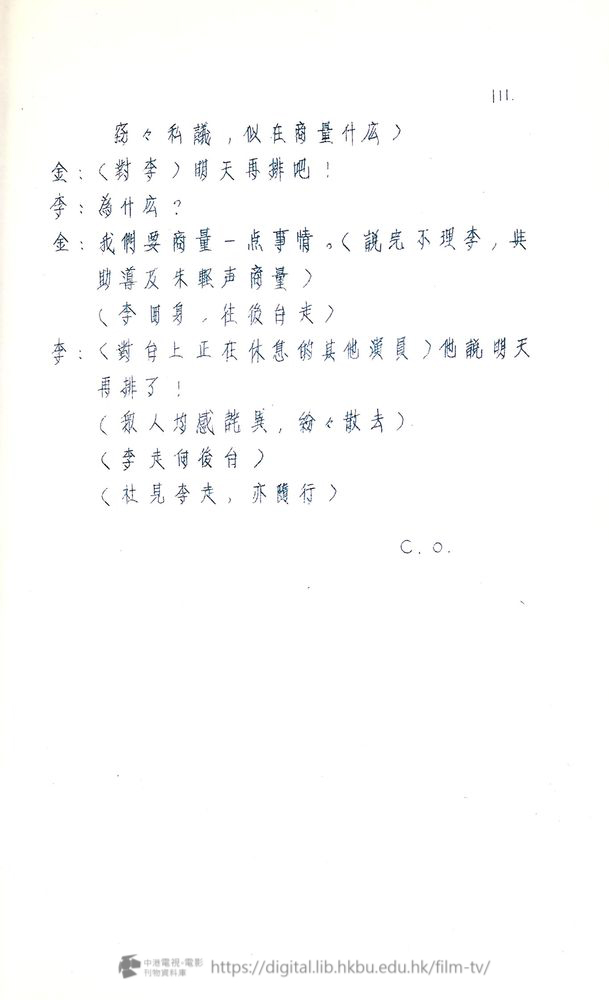 111.
窃々私議，似在商量什庅）
金：（對李）明天再排吧！
李：為什庅？
金：我們要商量一点事情。（說完不理李，與
助導及朱輕声商量）
（李回身，往後台走）
李：（對台上正在休息的其他演員）他說明天
再排了！
（眾人均感詫異，紛々散去）
（李走向後台）
（杜見李走，亦隨行）
C.O.
中港電視·電影
刊物資料庫
https://digital.lib.hkbu.edu.hk/film-tv/